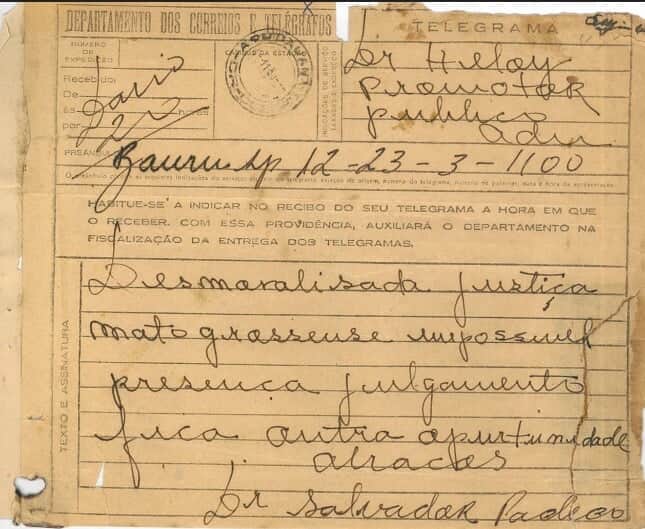 DEPARTAMENTO DOS CORREIOS E TELÉGRAFOS
TELEGRAMA
NÚMERO DE EXPEDIÇÃO
CARIMBO DA ESTAÇÃO
INDICAÇÕES DE SERVIÇO TAXADAS E ENDEREÇO
Recebido:
De
às horas
por
Dr Heloy
Promotor
publico
PREÂMBULO
Bauru sp 12-23-3-1100
HABITUE-SE A INDICAR NO RECIBO DO SEU TELEGRAMA A HORA EM QUE
O RECEBER. COM ESSA PROVIDÊNCIA, AUXILIARÁ O DEPARTAMENTO NA
FISCALIZAÇÃO DA ENTREGA DOS TELEGRAMAS.
TEXTO E ASSINATURA
Desmoralisada justiça
mato grossense impossivel
presença julgamento
fica outra opurtunidade
abraços
Dr Salvador Pacheco